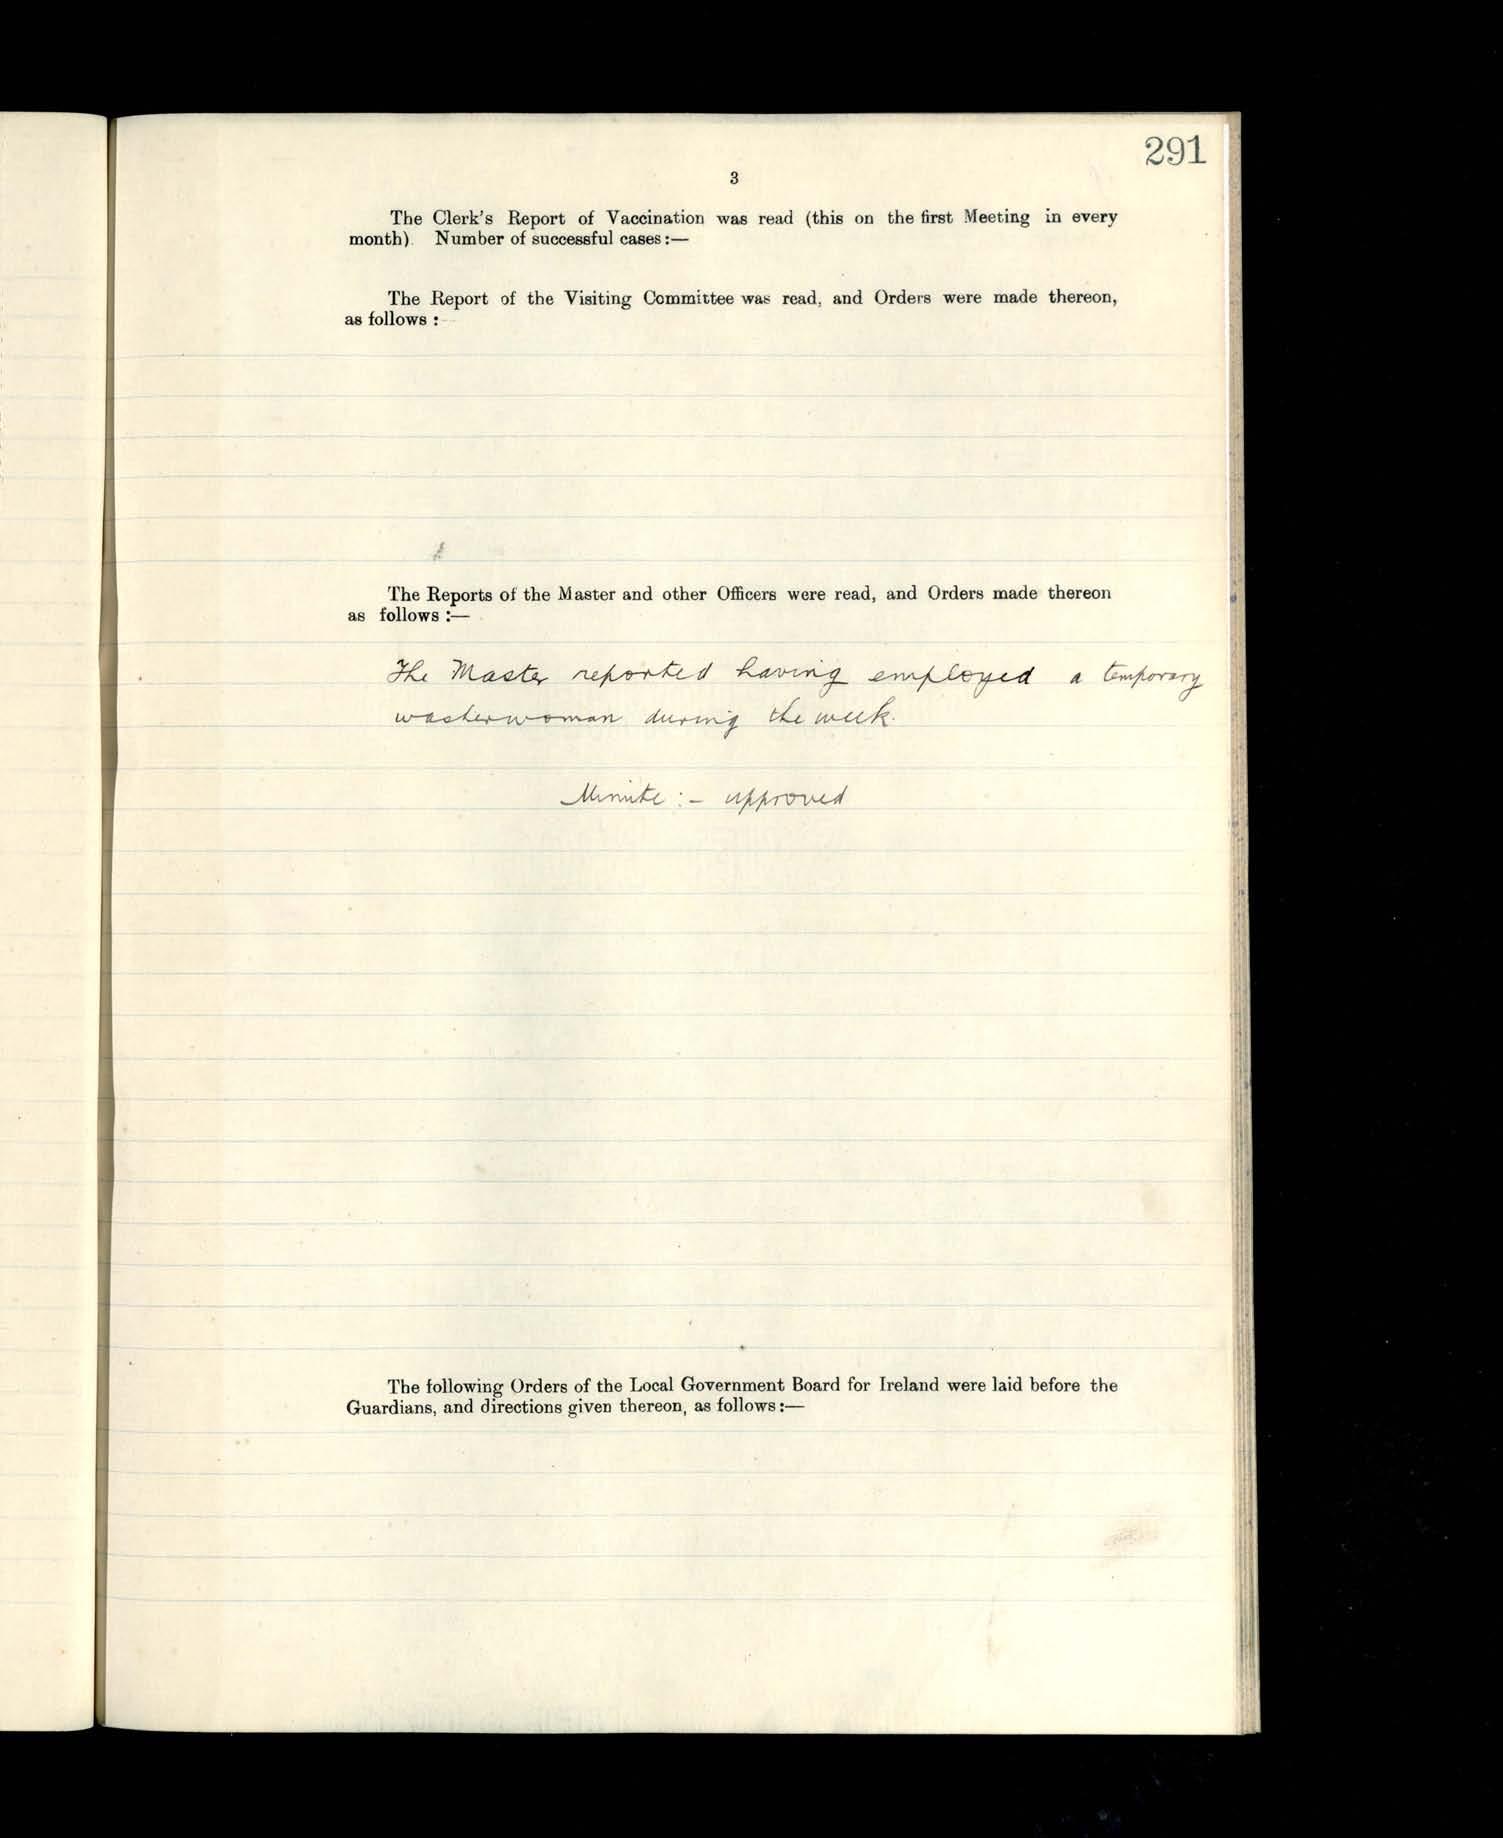 291
3
The Clerk's Report of Vaccination was read (this on the first Meeting in every
month). Number of successful cases:—
The Report of the Visiting Committee was read, and Orders were made thereon,
as follows :—
The Reports of the Master and other Officers were read, and Orders made thereon
as follows :—
The Master reported having employed a temporary
washerwoman during the week.
Minute :- approved
The following Orders of the Local Government Board for Ireland were laid before the
Guardians, and directions given thereon, as follows:—